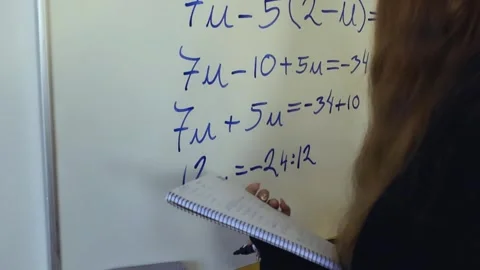 7u-5(2-u)=
7u-10+5u=-34
7u+5u=-34+10
12 =-24:12